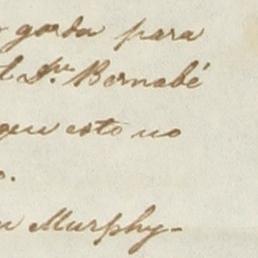 gorda para
Sr. Bernabé
que esto no
Murphy-